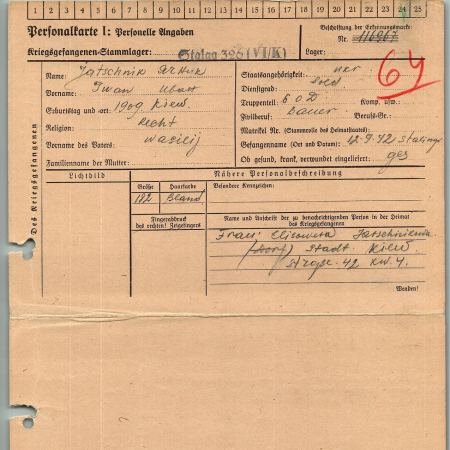 1 2 3 4 5 6 7 8 9 10 11 12 13 14 15 16 17 18 19 20 21 22 23 24 25
Personalkarte I: Personelle Angaben
Kriegsgefangenen-Stammlager: Stalag 326 (VI/K)
Beschriftung der Erkennungsmarke
Nr. 116967
Lager:
64
Des Kriegsgefangenen
Name: Jatschnik
Vorname: Iwan
Geburtstag und -ort: 1909 Kiew
Religion:
Vorname des Vaters: Wasilij
Familienname der Mutter:
Staatsangehörigkeit: ukr
Dienstgrad: Sold
Truppenteil: 6 O D Komp. usw.:
Zivilberuf: Bauer Berufs-Gr.:
Matrikel Nr. (Stammrolle des Heimatstaates):
Gefangennahme (Ort und Datum): 12.9.42 Stalingr
Ob gesund, krank, verwundet eingeliefert: ges
Lichtbild
Nähere Personalbeschreibung
Größe Haarfarbe
182 Bland
Besondere Kennzeichen:
Fingerabdruck
des rechten! Zeigefingers
Name und Anschrift der zu benachrichtigenden Person in der Heimat
des Kriegsgefangenen
Frau: Elisaweta
(Dorf) Stadt Kiew
42 Kw. 4.
Wenden!